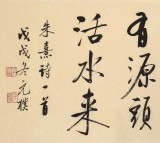 有源頭
活水来
朱熹诗一首
戊戌冬元樸